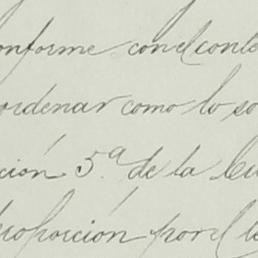 onforme con el conte
ordenar como lo so
ción 5.ª de la Cu
proporción por el l